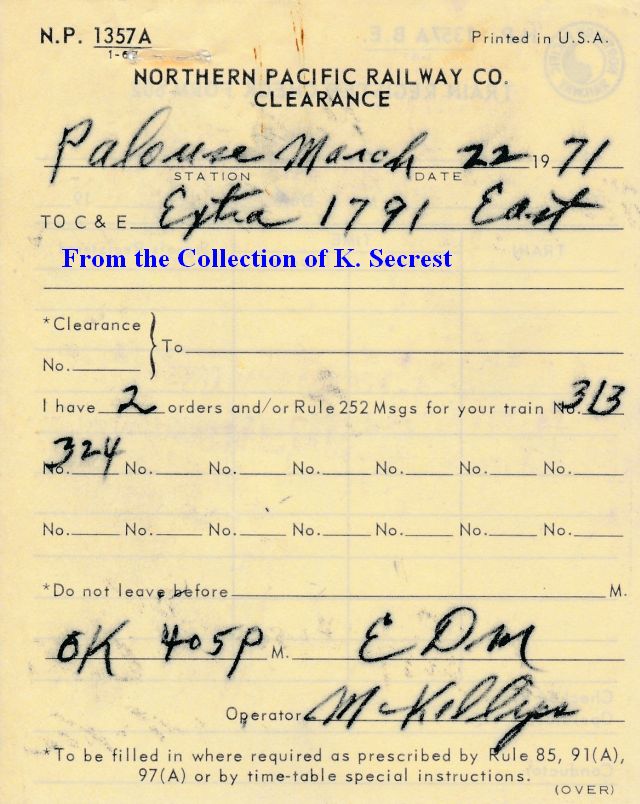 N.P. 1357A Printed in U.S.A.
1-6
NORTHERN PACIFIC RAILWAY CO.
CLEARANCE
Palouse March 22 1971
STATION DATE
TO C & E Extra 1791 East
From the Collection of K. Secrest
*Clearance
No. To
I have 2 orders and/or Rule 252 Msgs for your train No. 313
No. 324 No. No. No. No. No. No.
No. No. No. No. No. No. No.
*Do not leave before M.
OK 405P M. EDM
Operator McKillips
*To be filled in where required as prescribed by Rule 85, 91(A),
97(A) or by time-table special instructions.
(OVER)